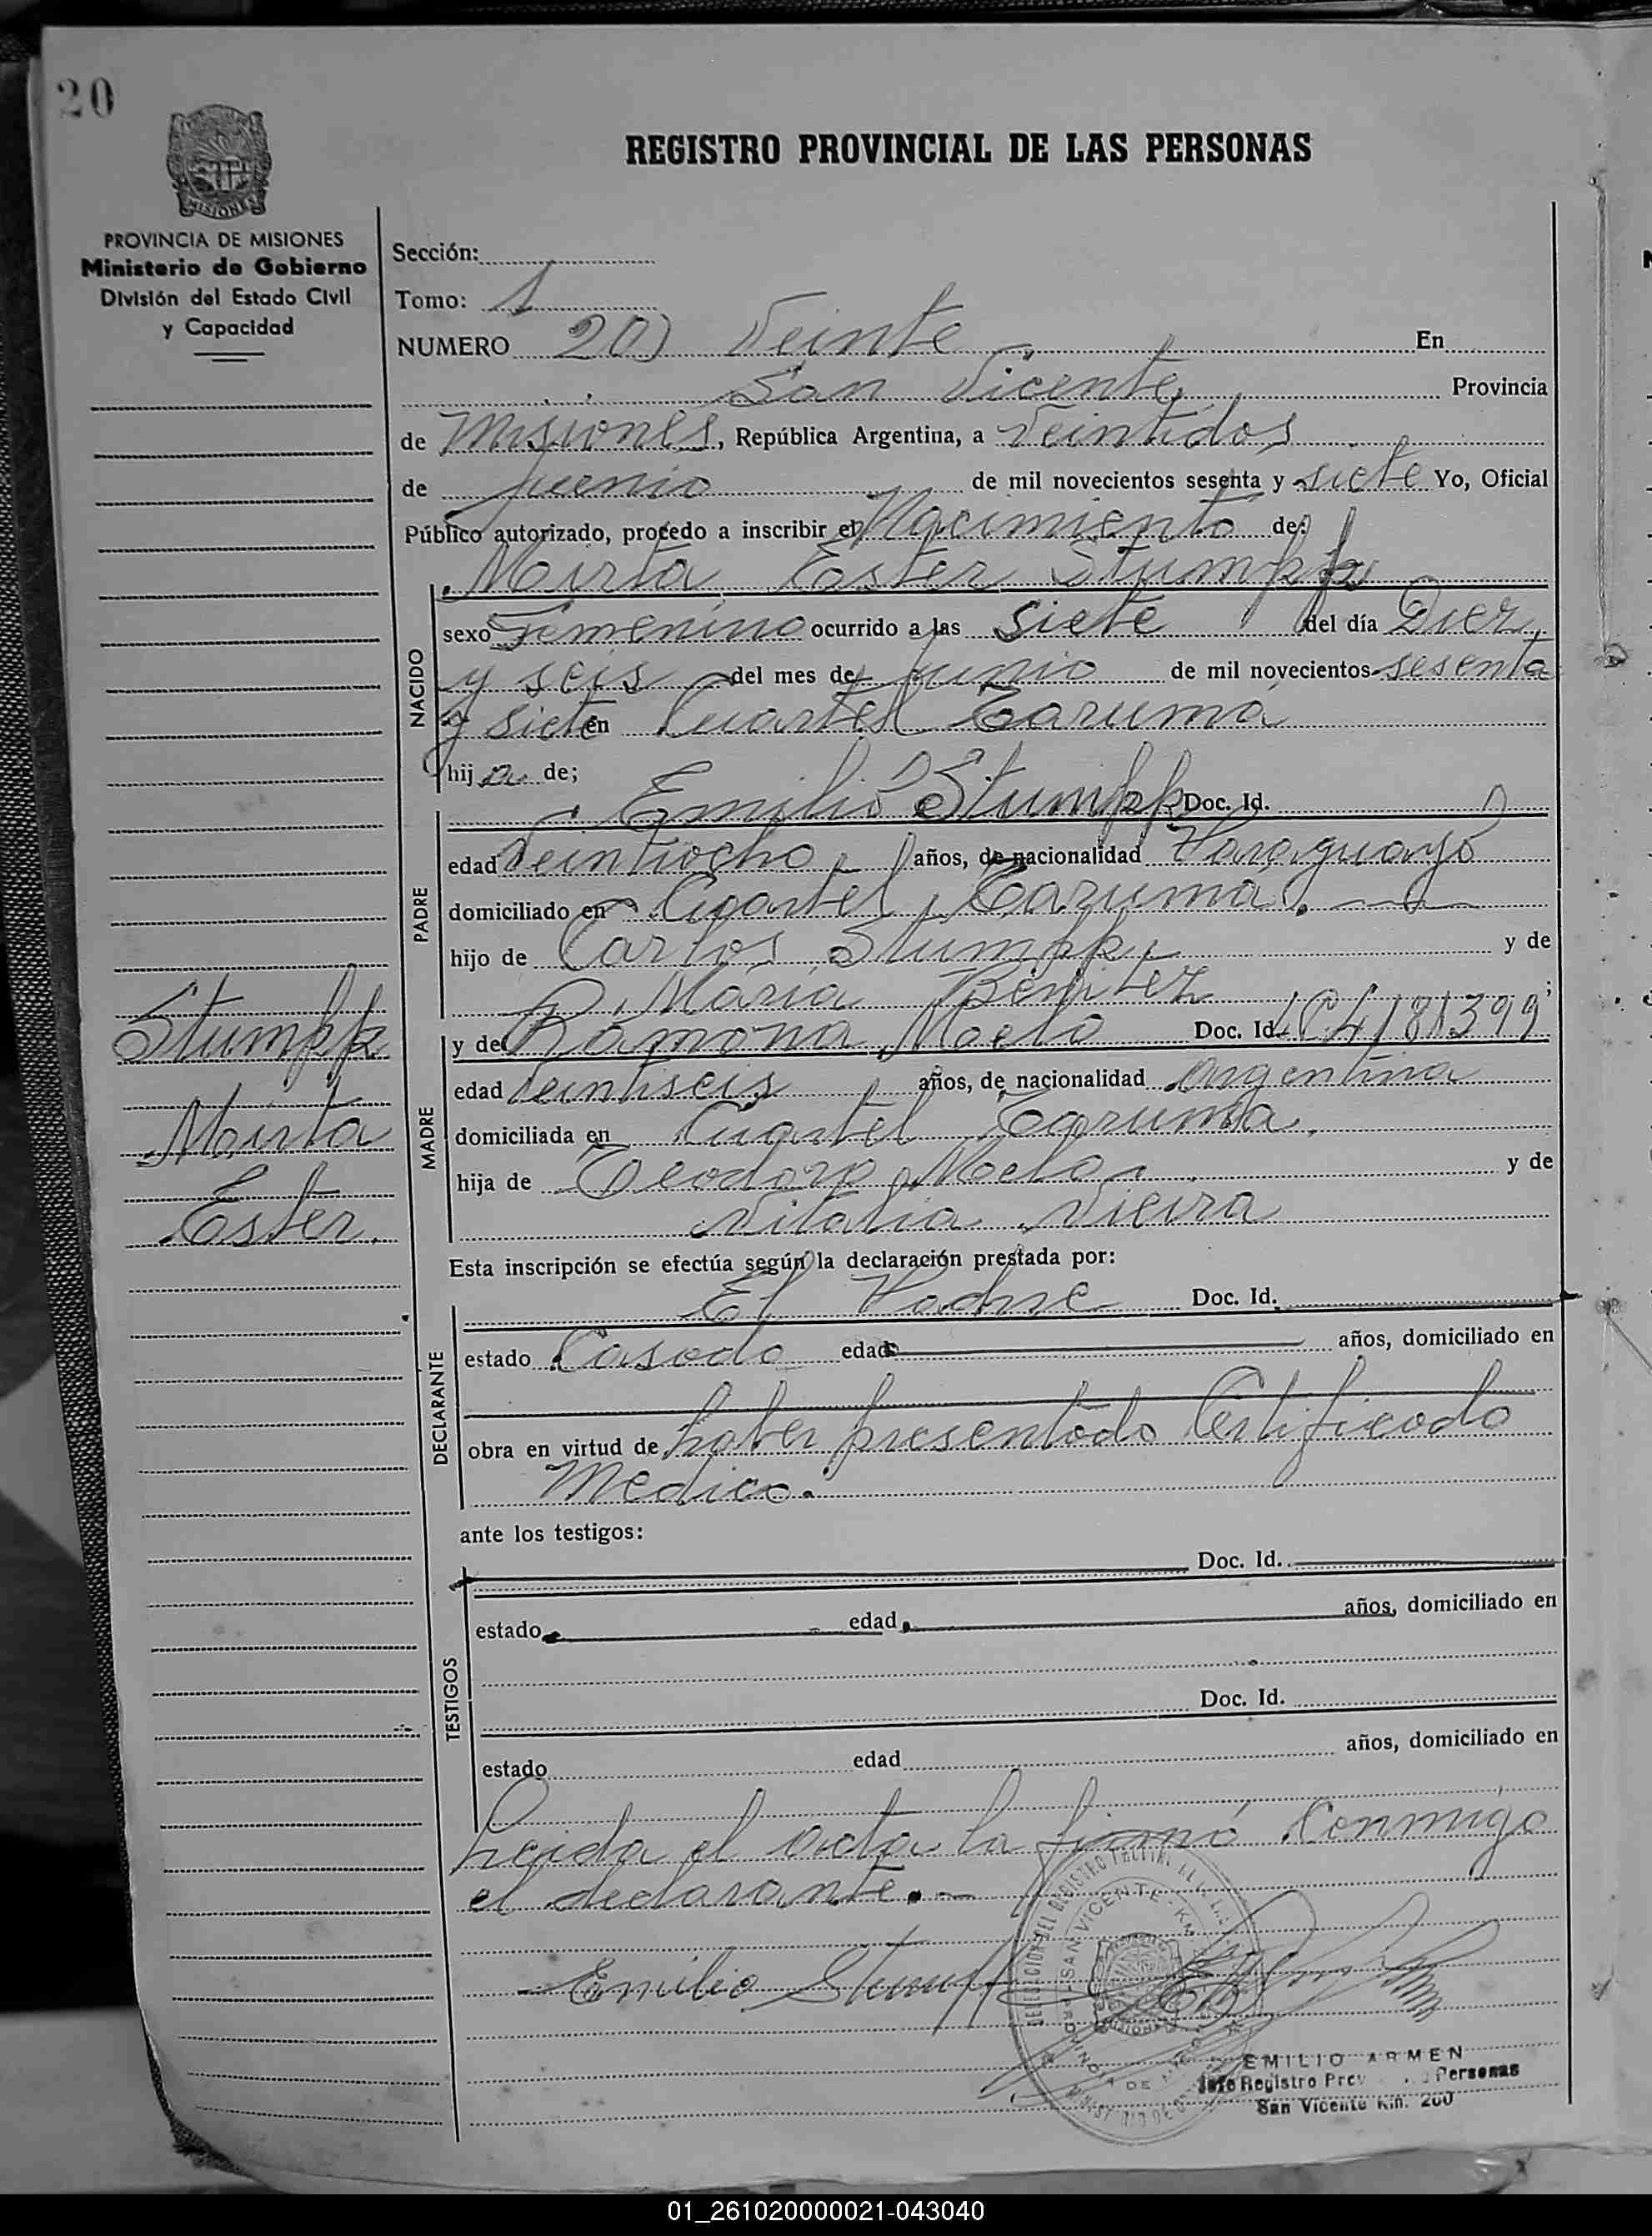 20
MISIONES
PROVINCIA DE MISIONES
Ministerio de Gobierno
División del Estado Civil
y Capacidad
REGISTRO PROVINCIAL DE LAS PERSONAS
Sección:
Tomo: 1
NUMERO 20) Veinte En
San Vicente Provincia
de Misiones, República Argentina, a Veintidos
de junio de mil novecientos sesenta y siete Yo, Oficial
Público autorizado, procedo a inscribir el Nacimiento de:
Mirta Ester Stumpf
NACIDO
sexo Femenino ocurrido a las siete del día Diez
y seis del mes de junio de mil novecientos sesenta
y siete en Cuartel Tarumá
hija de;
PADRE
Emilio Stumpf Doc. Id.
edad Veintiocho años, de nacionalidad Paraguayo
domiciliado en Cuartel Tarumá.
hijo de Carlos Stumpf y de
María Benitez
MADRE
y de Ramona Melo Doc. Id.
edad Veintiseis años, de nacionalidad argentina
domiciliada en Cuartel Taruma.
hija de Teodoro Melo y de
Vitalia Vieira
Stumpf
Mirta
Ester.
Esta inscripción se efectúa según la declaración prestada por:
DECLARANTE
El Padre Doc. Id.
estado Casado edad años, domiciliado en
obra en virtud de haber presentado Certificado
Medico.
ante los testigos:
TESTIGOS
Doc. Id.
estado edad años, domiciliado en
Doc. Id.
estado edad años, domiciliado en
Leida el acta la firmó Conmigo
el declarante.-
Emilio Stumpf
SAN VICENTE
EMILIO ARMEN
Jefe Registro Personas
San Vicente Km. 200
01_261020000021-043040